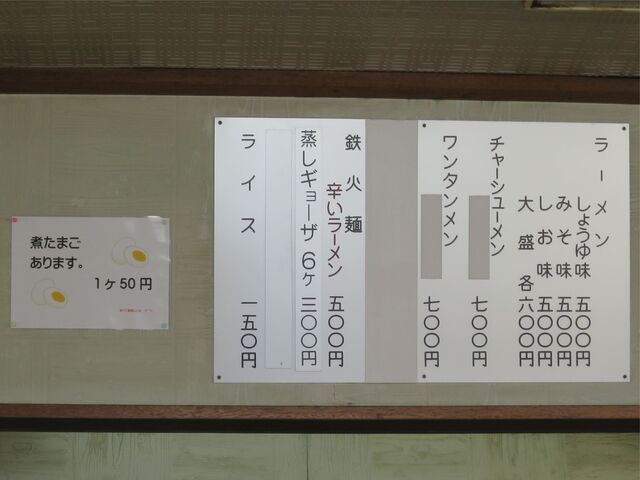 ラーメン
しょうゆ味 五〇〇円
みそ味 五〇〇円
しお味 五〇〇円
大盛各 六〇〇円
チャーシューメン 七〇〇円
ワンタンメン 七〇〇円
鉄火麺
辛いラーメン 五〇〇円
蒸しギョーザ 6ヶ 三〇〇円
ライス 一五〇円
煮たまご
あります。
1ヶ50円